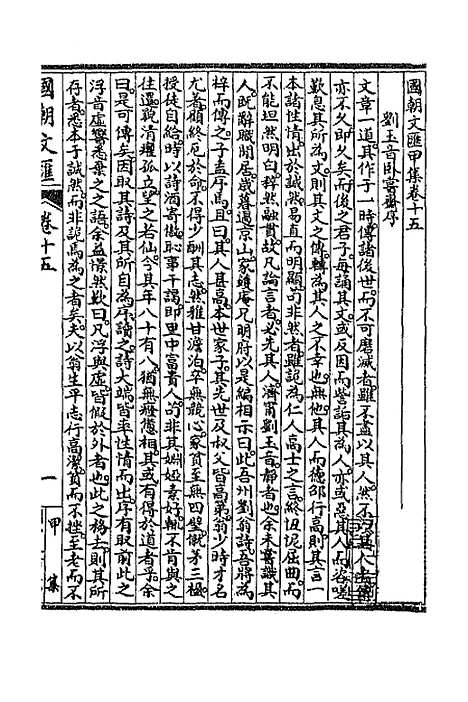 國朝文匯甲集卷十五
劉玉音卧雲齋序
文章一道其作于一時傳諸後世而不可磨滅者雖不盡以其人然不以其人
亦不久即久矣而後之君子每誦其文或反因而訾詬其為人亦或惡其人而咨嗟
歎息其所存為文則其文之傳轉為其人之不幸也無他其人而德邵行高則其言一
本諸性情出於誠然易直而明顯苟非然者雖詭為仁人高士之言終伹泥屈曲而
不能坦然明白釋然融貫故凡論言者必先其人濟甯劉玉音靜者也余未嘗識其
人既辭職閒居歲暮過京山家鏡庵兄明府以是編相示曰此吾州劉翁詩吾將為
梓而傳之子盍序焉且曰其人甚高本世家子其先世及叔父皆高第翁少時才名
尤著顧終厄於命不得少酬其志然雅甘澹泊卒無競心家貧至無四壁僦茅三楹
授徒自給時以詩酒寄傲恥事干謁即里中富貴人苟非其婣婭素好輒不肯與之
往還貌清癯孤立望之若仙今其年八十有八猶無癃憊相其或有得於道者乎余
曰是可傳矣因取其詩及其所自為序讀之詩大端皆率性情而出序有取前此之
浮音虛響悉棄之之語余益懍然歎曰凡浮與虛皆假於外者也此之格去則其所
存者悉本于誠然而非詭焉為之者矣夫以翁生平志行高潔貧而不挫至老而不
國朝文匯
卷十五
一
甲集